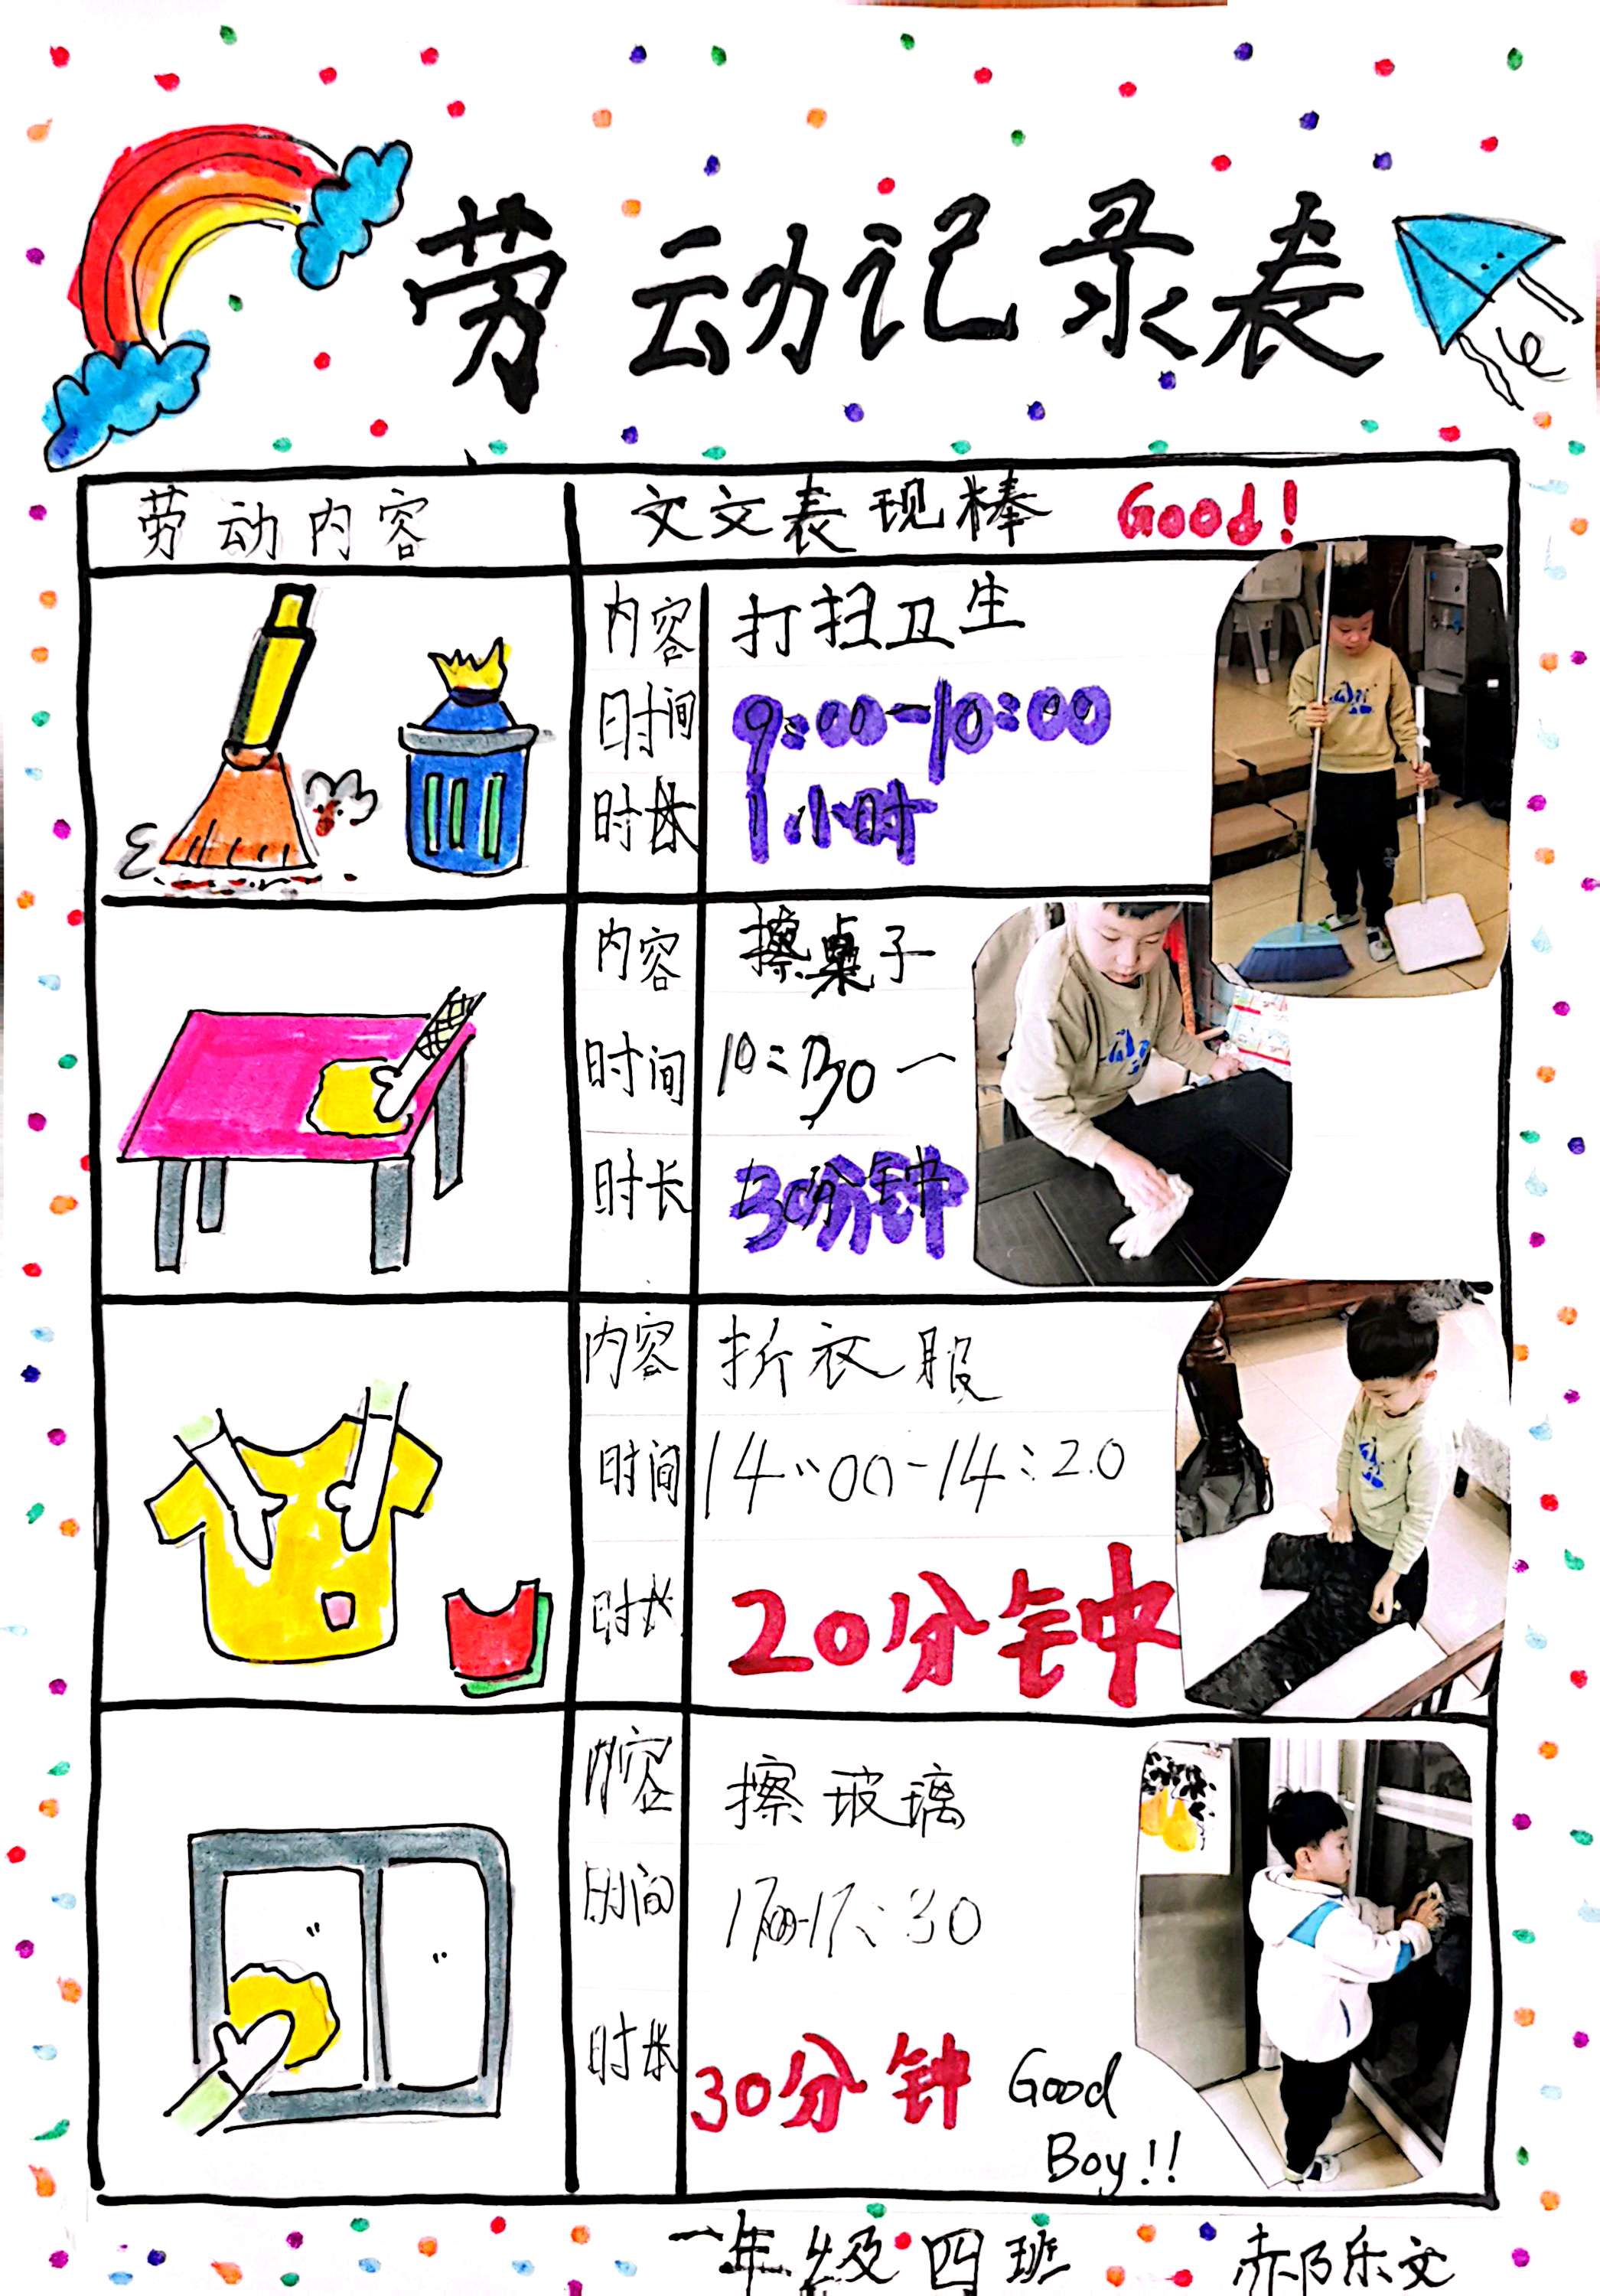 劳动记录表
劳动内容
文文表现棒 Good!
内容 打扫卫生
时间 9:00-10:00
时长 1小时
内容 擦桌子
时间 10:30-
时长 30分钟
内容 折衣服
时间 14:00-14:20
时长 20分钟
内容 擦玻璃
时间 17:00-17:30
时长 30分钟
Good
Boy!!
一年级四班 郝乐文